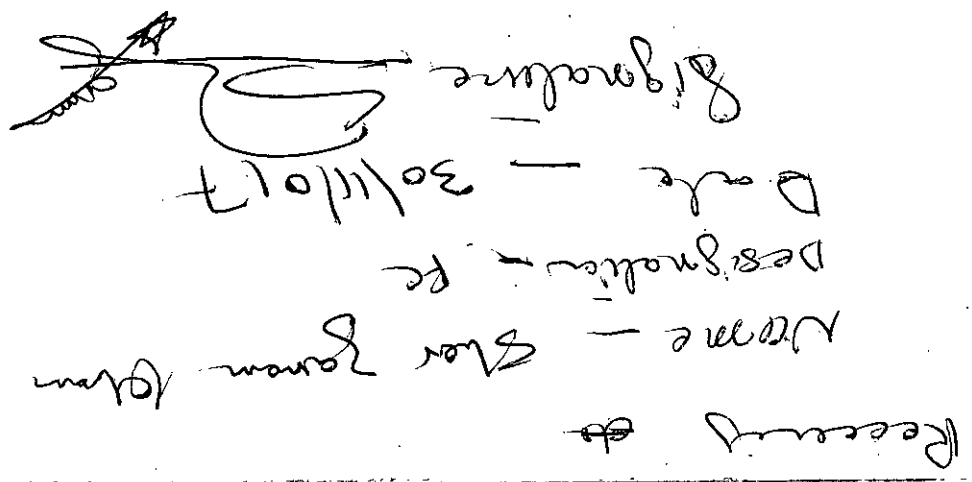 Receiving
Name - Sher Zaman Khan
Designation - PC
Date - 30/11/017
Signature -